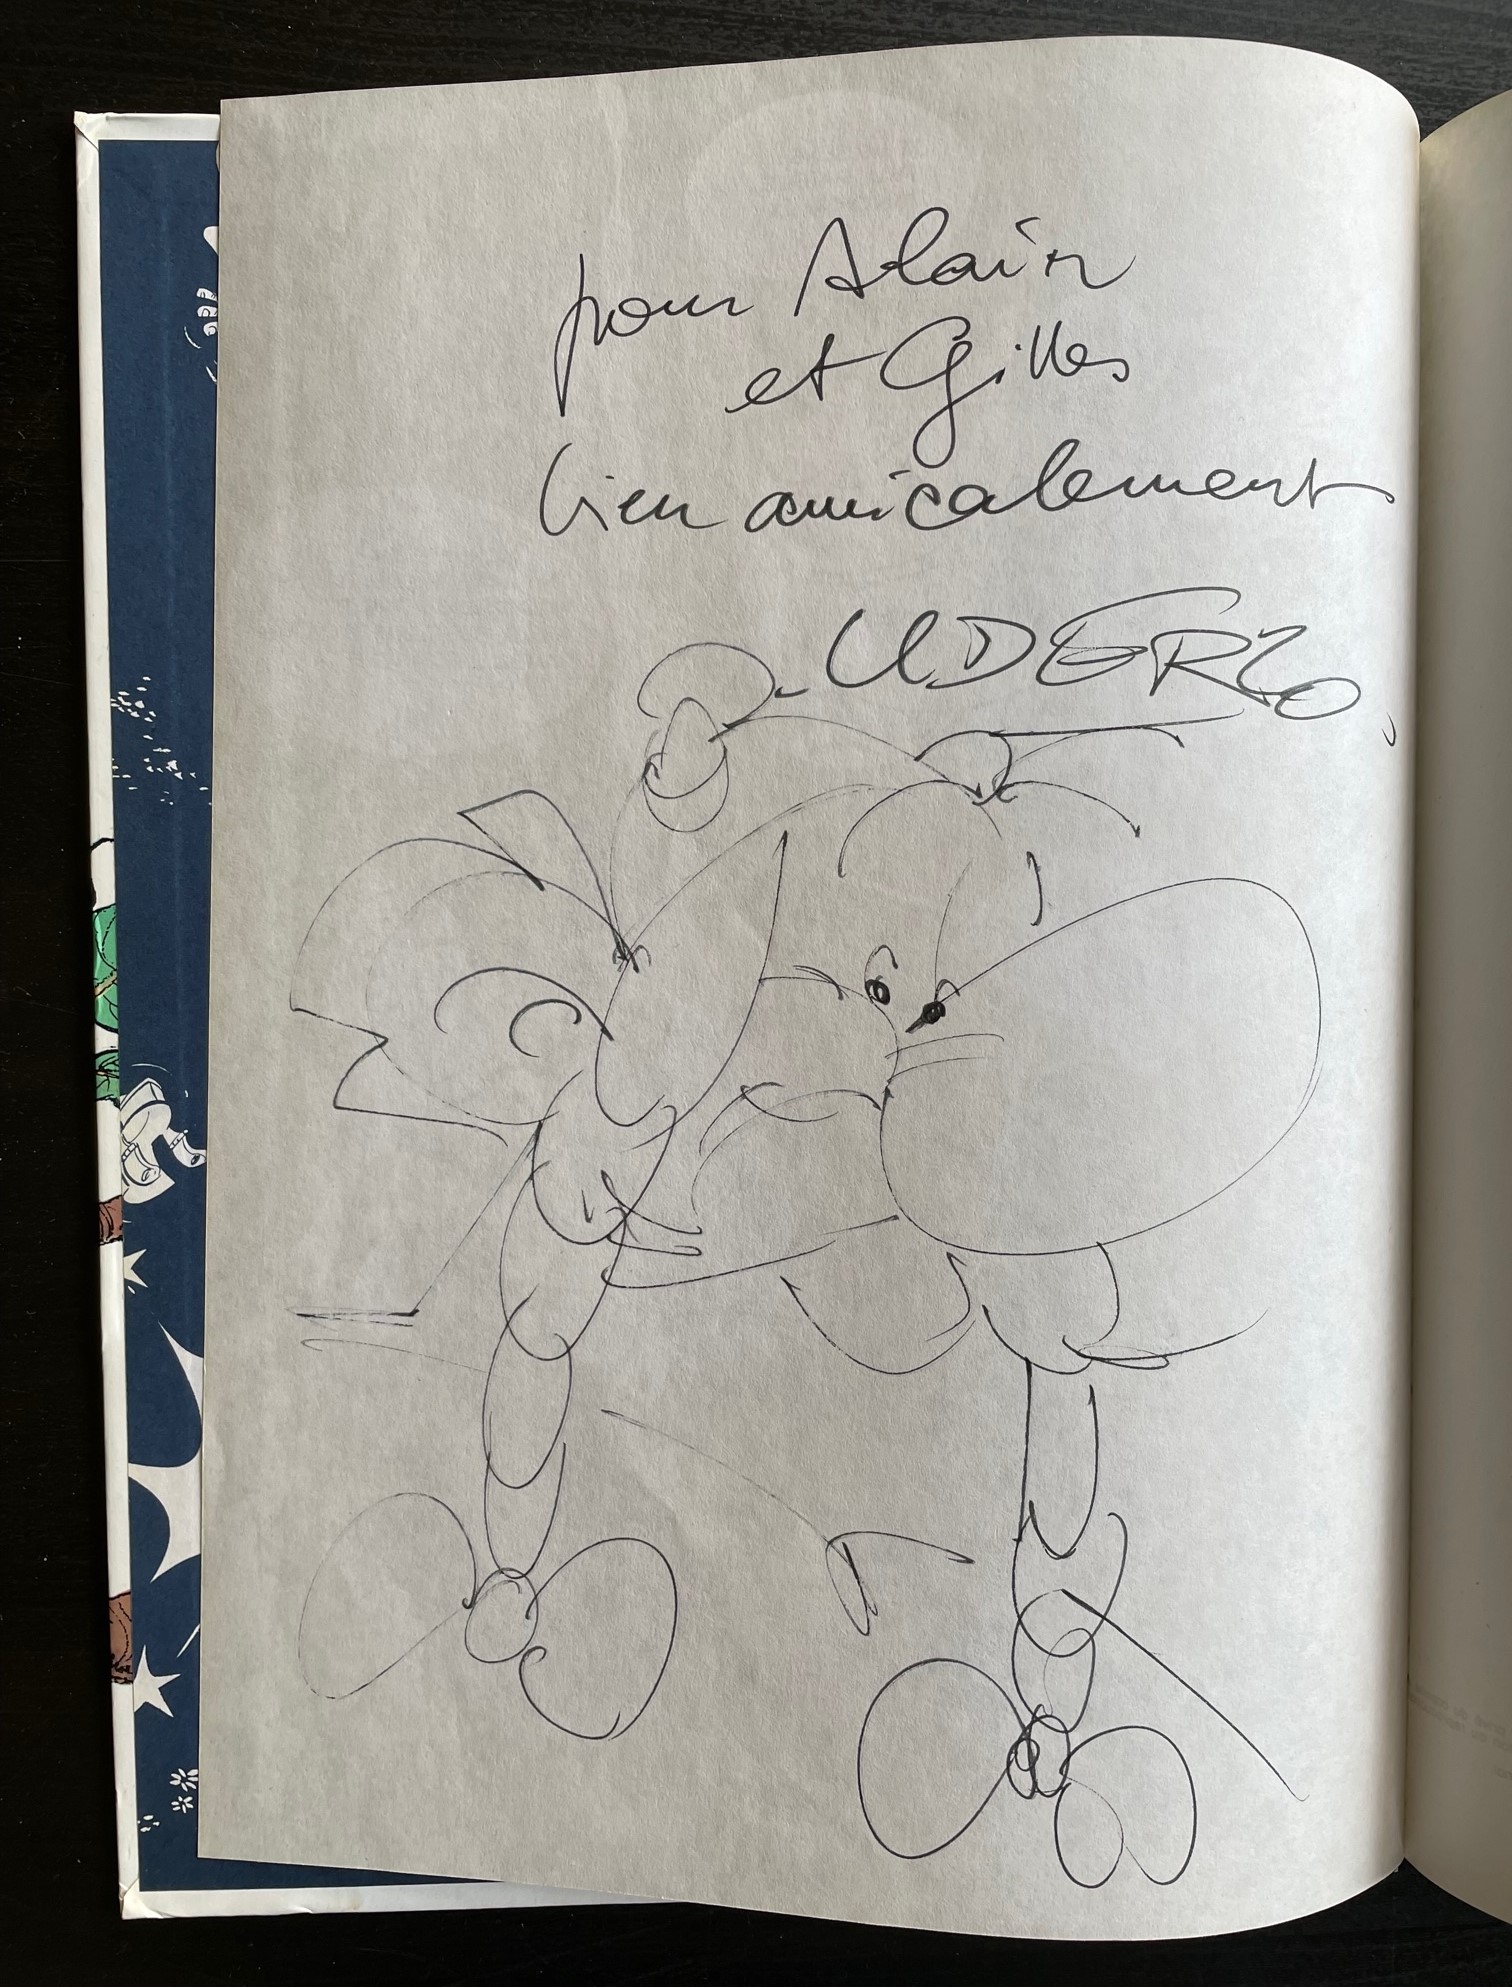 pour Alain
et Gilles
bien amicalement
UDERZO